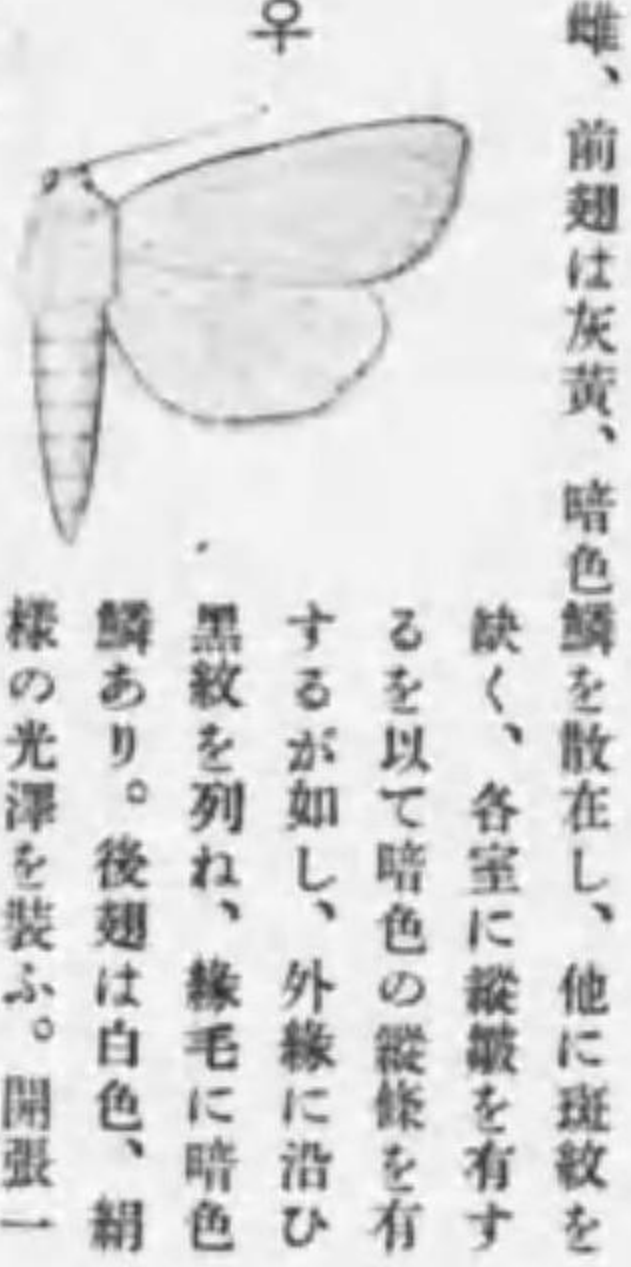 ♀
雌、前翅は灰黃、暗色鱗を散在し、他に斑紋を
缺く、各室に縱皺を有す
るを以て暗色の縱條を有
するが如し、外緣に沿ひ
黑紋を列ね、緣毛に暗色
鱗あり。後翅は白色、絹
樣の光澤を裝ふ。開張一